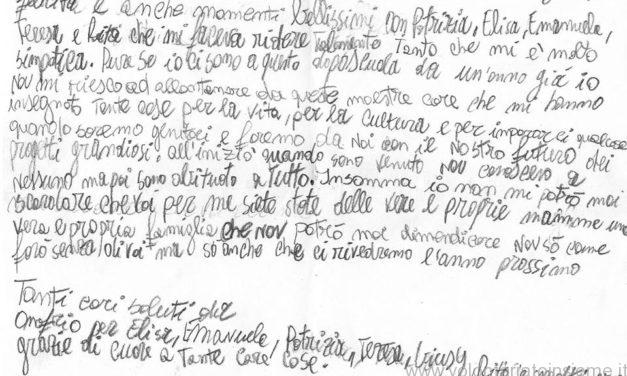 felicità e anche momenti bellissimi con Patrizia, Elisa, Emanuela,
Teresa e Rita che mi faceva ridere talmente tanto che mi è molto
simpatica. Pure se io ci sono a questo doposcuola da un'anno già io
non mi riesco ad allontanare da queste maestre care che mi hanno
insegnato tante cose per la vita, per la cultura e per impararci qualcosa
quando saremo genitori e faremo da noi con il nostro futuro dei
progetti grandiosi, all'inizio quando sono venuto non conoscevo a
nessuno ma poi sono abituato a tutto. Insomma io non mi potrò mai
scordare che voi per me siete state delle vere e proprie mamme una
vera e propria famiglia che non potrò mai dimenticare non sò come
farò senza di voi ma sò anche che ci rivedremo l'anno prossimo
Tanti cari saluti da
Onofrio per Elisa, Emanuela, Patrizia, Teresa, Giusy
grazie di cuore a tante care cose.
www.volontariatoinsieme.it